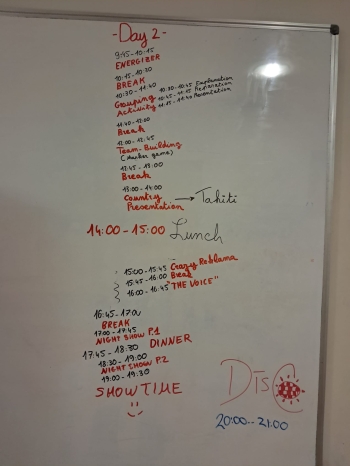 - Day 2 -
9:45-10:15
ENERGIZER
10:15-10:30
BREAK
10:30-11:40
Grouping
Activity
10:30-10:45 Explanation
10:45-11:15
11:15-11:40 Presentation
11:40-12:00
Break
12:00-12:45
Team-Building
12:45-13:00
Break
13:00-14:00
Country
Presentation → Tahiti
14:00-15:00 Lunch
15:00-15:45 Crazy Reklama
15:45-16:00 Break
16:00-16:45 "THE VOICE"
16:45-17:00
BREAK
17:00-17:45
NIGHT SHOW P.1
17:45-18:30 DINNER
18:30-19:00
NIGHT SHOW P.2
19:00-19:30
SHOWTIME
20:00-21:00